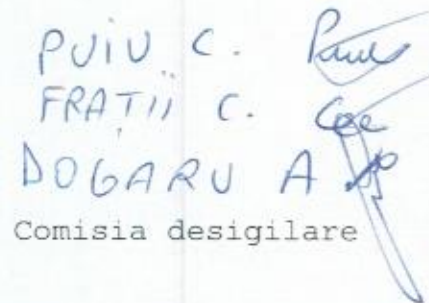 PUIU C.
FRAȚII C.
DOGARU A
Comisia desigilare